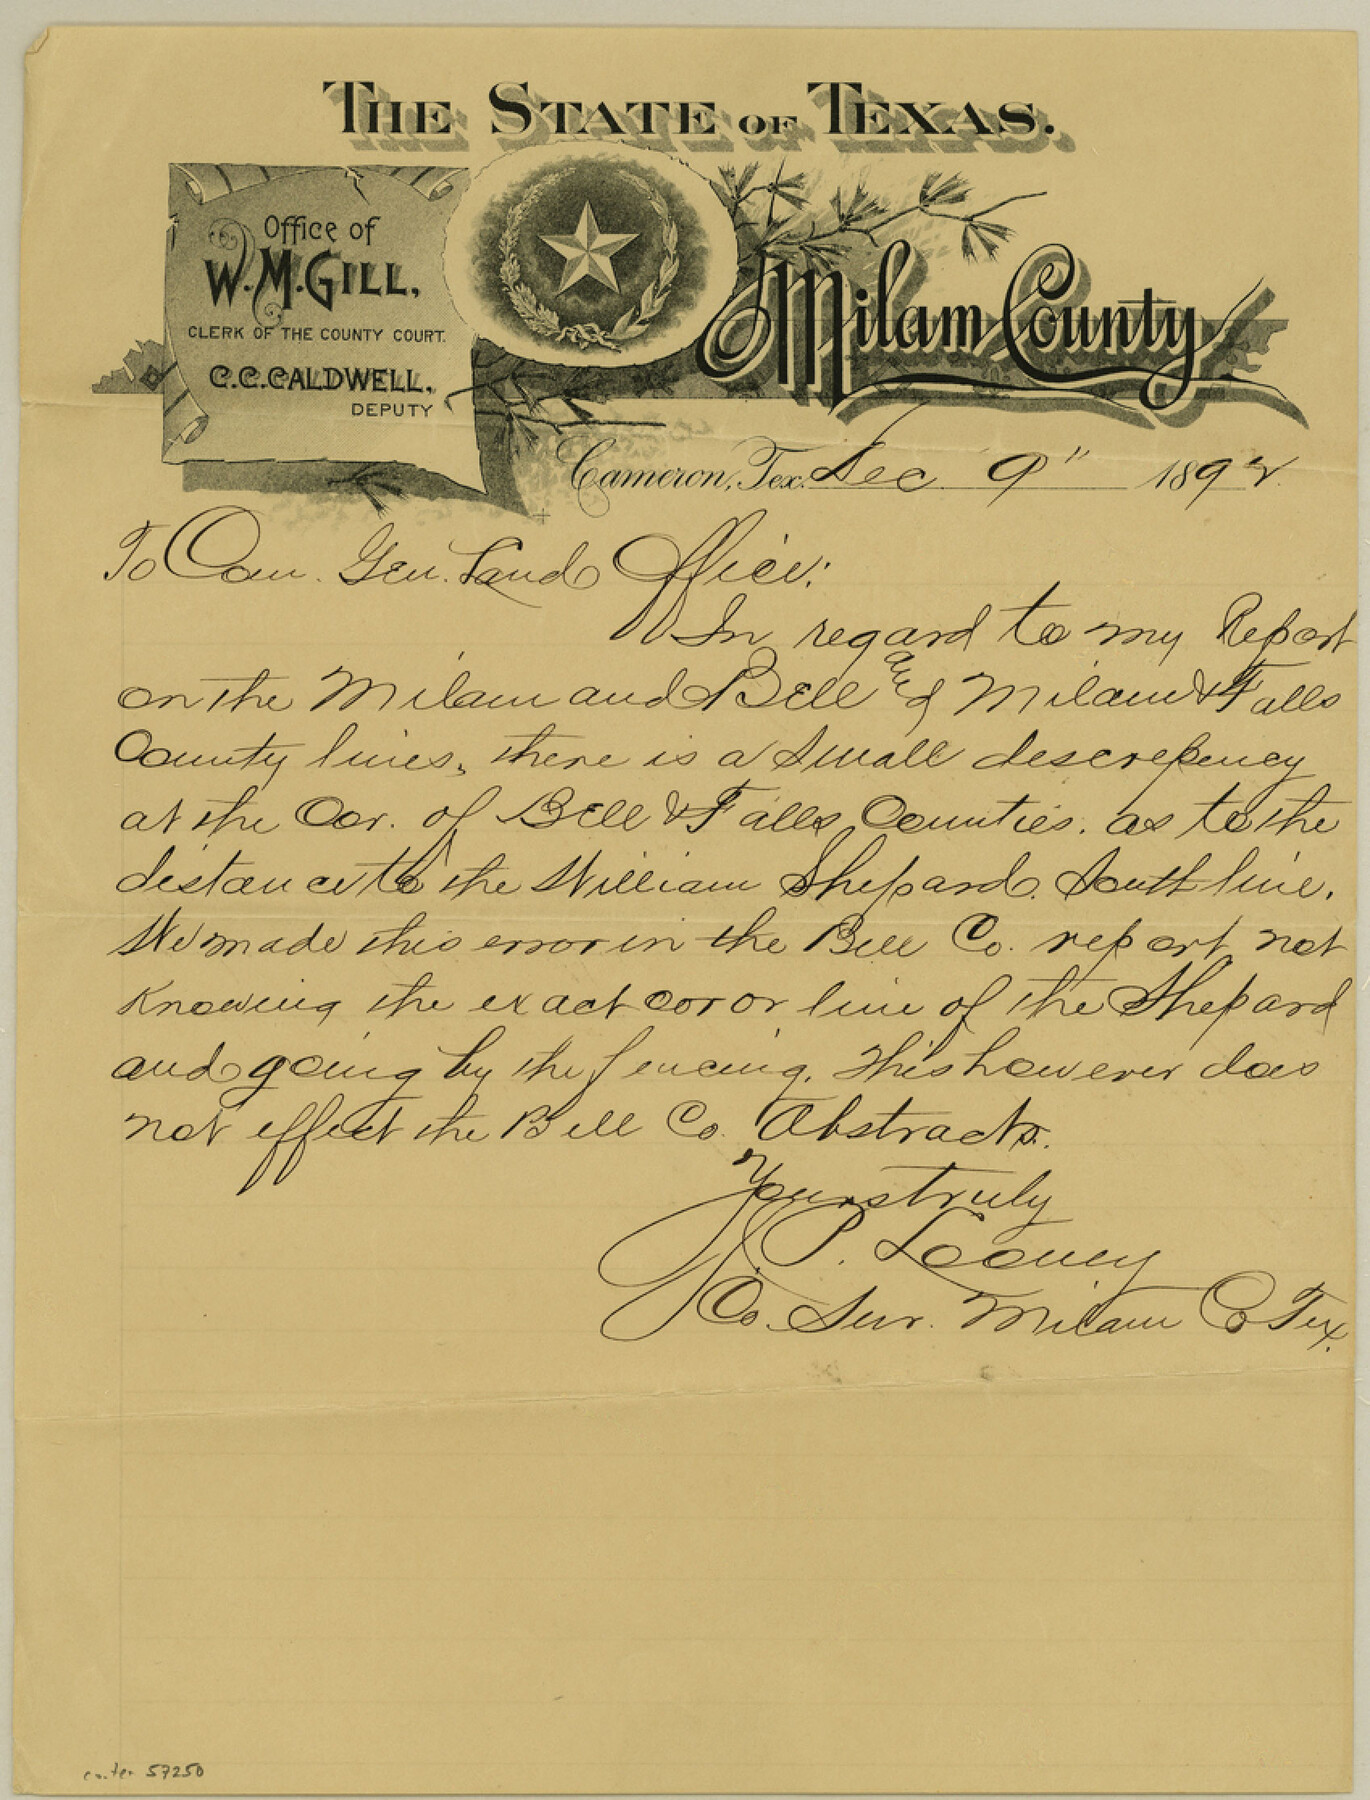 THE STATE OF TEXAS.
Office of
W. M. GILL,
CLERK OF THE COUNTY COURT.
C. C. CALDWELL,
DEPUTY
Milam County
Cameron, Tex. Dec. 9" 1892
To Com. Gen. Land Office:
In regard to my Report
on the Milam and Bell and Milam & Falls
County lines, there is a small descrepency
at the Cor. of Bell & Falls Counties. as to the
distance to the William Shepard. South line.
We made this error in the Bell Co. report not
Knowing the exact cor or line of the Shepard
and going by the fencing. This however does
not effect the Bell Co. Abstracts.
Yours truly
J. P. Looney
Co. Sur. Milam Co Tex.
57250